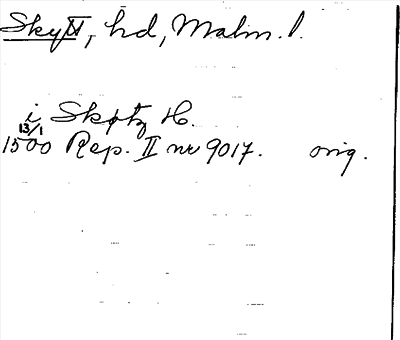 Skytt, hd, Malm. l.
i Skytz H.
13/1
1500 Rep. II nr 9017. orig.